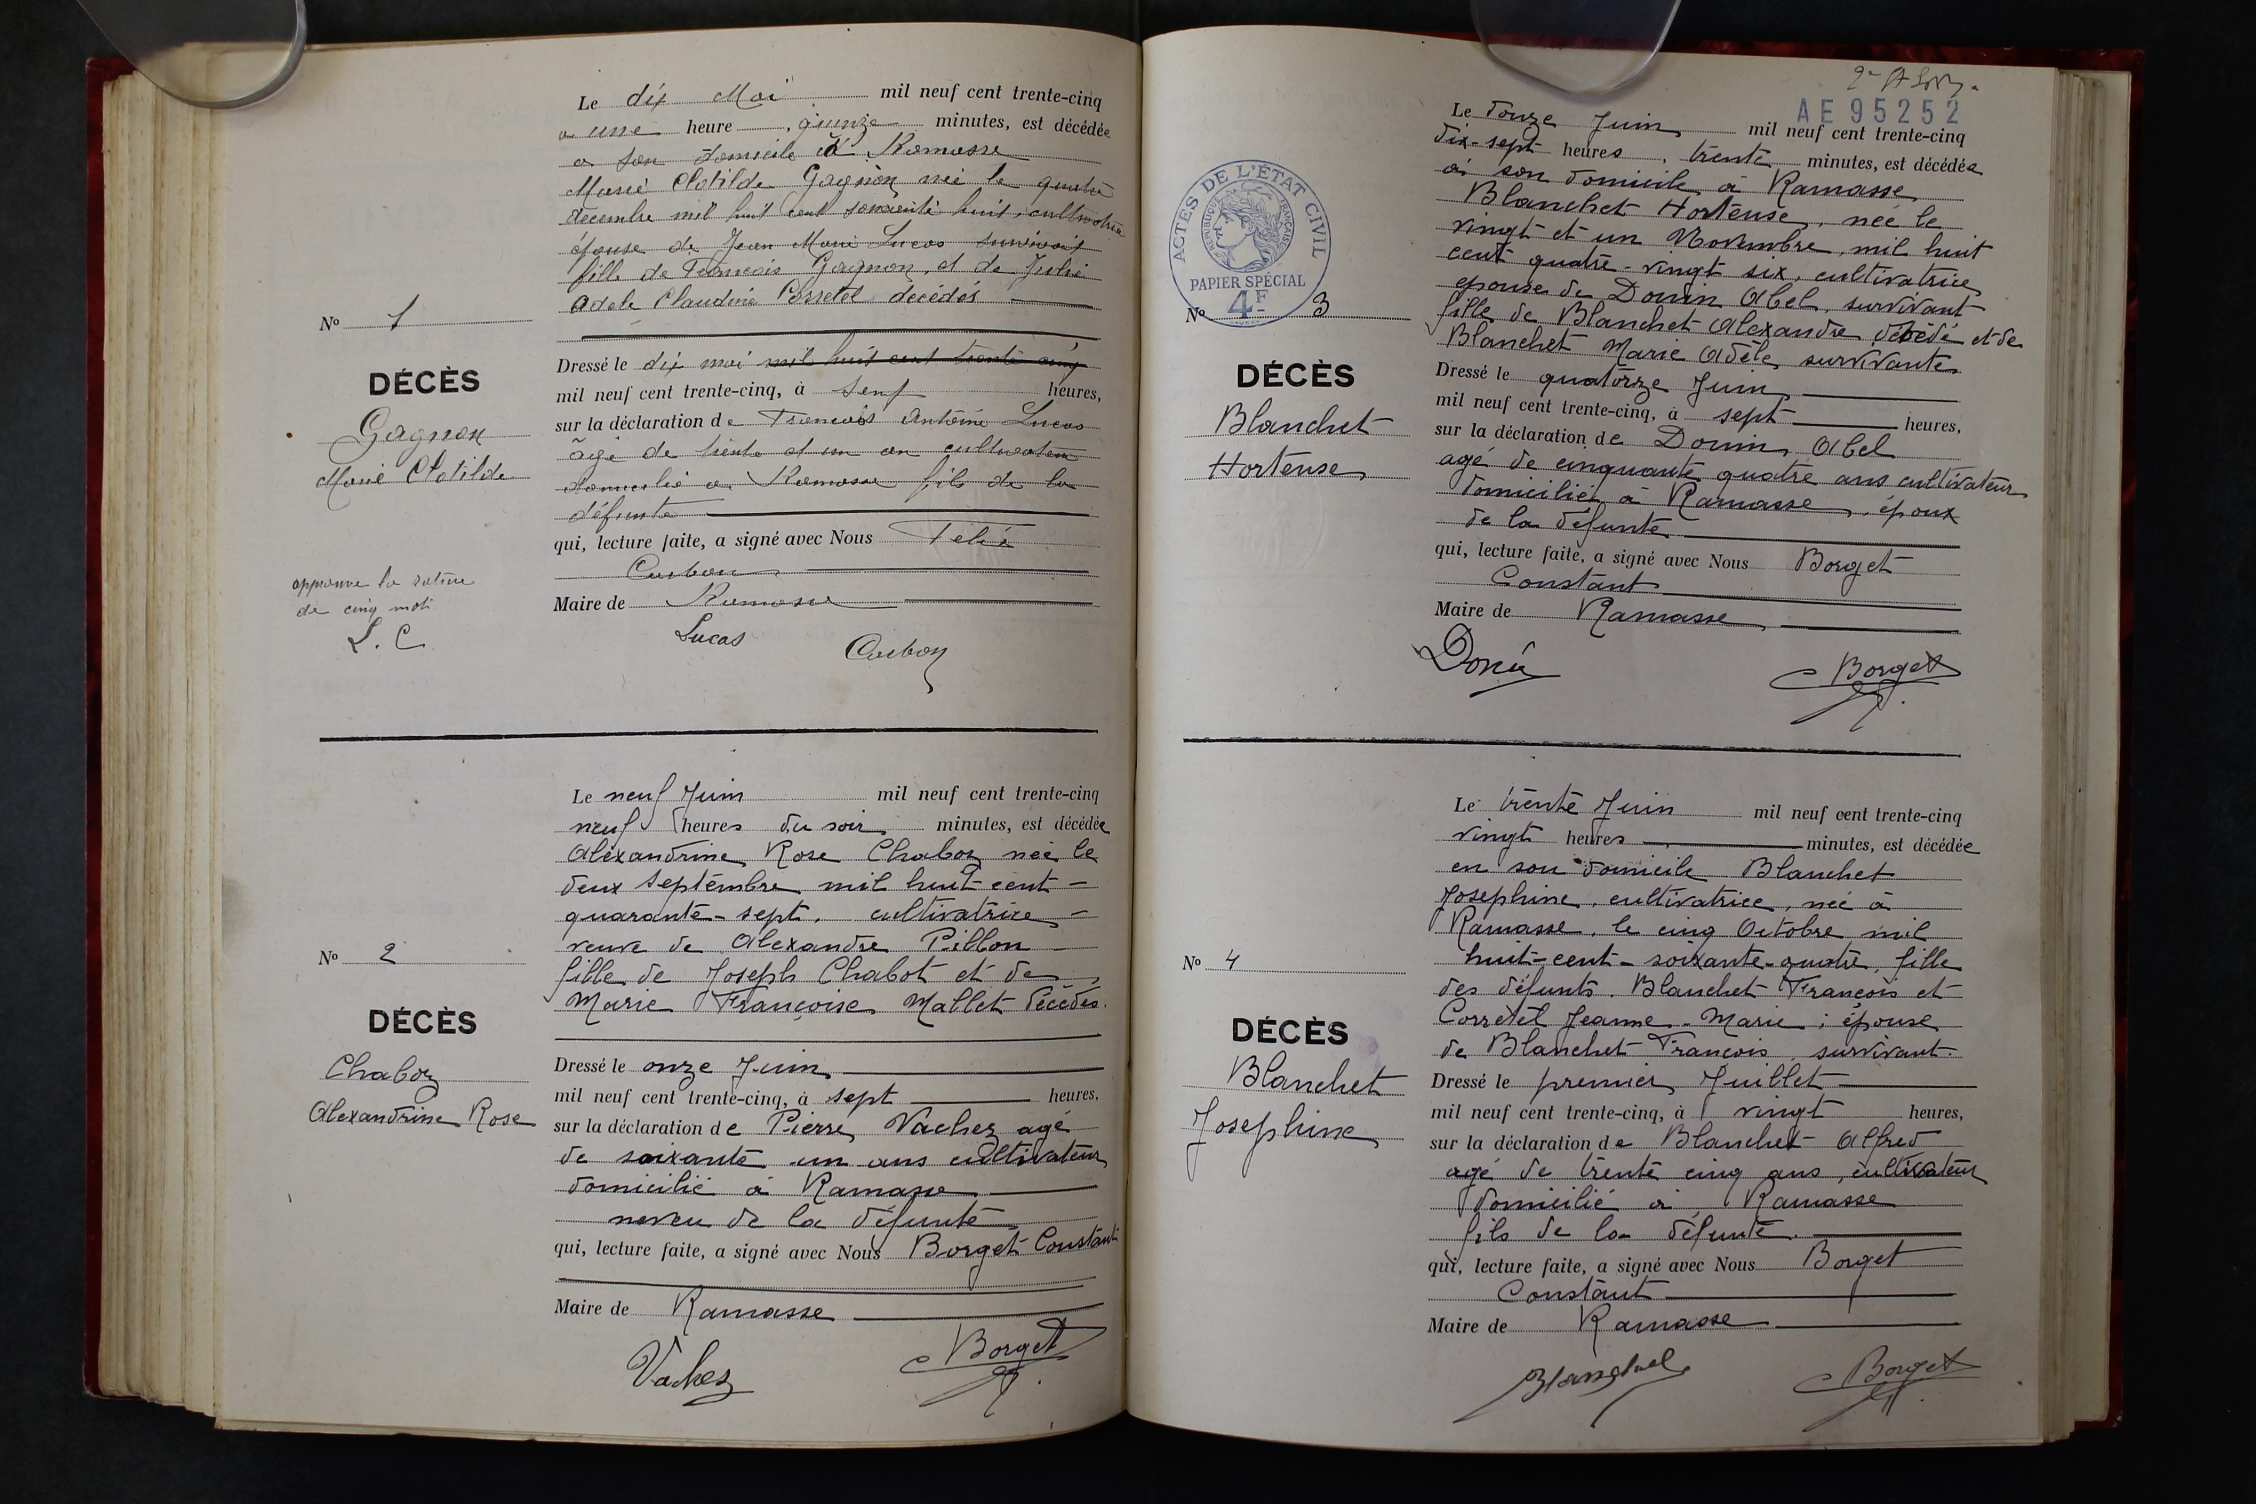 Le dix Mai mil neuf cent trente-cinq
a une heure, quinze minutes, est décédée
a son domicile à Ramasse
Marie Clotilde Gagnon née le quatre
decembre mil huit cent soixante huit, cultivatrice
épouse de Jean Marie Lucas survivant
fille de Francois Gagnon, et de Julie
Adele Claudine Corretel décédés
No 1
DÉCÈS
Gagnon
Marie Clotilde
Dressé le dix mai mil huit cent trente cinq
mil neuf cent trente-cinq, à heures,
sur la déclaration de Francois Antoine Lucas
âgé de trente et un an cultivateur
domicilié a Ramasse fils de la
défunte
qui, lecture faite, a signé avec Nous Félix
Carbon
Maire de Ramasse
approuve la rature
de cinq mots
L. C
Lucas Carbon
Le neuf Juin mil neuf cent trente-cinq
neuf heures du soir minutes, est décédée
Alexandrine Rose Chaboz née le
deux septembre mil huit-cent-
quarante-sept. cultivatrice -
veuve de Alexandre Pillon
fille de Joseph Chabot et de
Marie Françoise Mallet décédés.
No 2
DÉCÈS
Chaboz
Alexandrine Rose
Dressé le onze Juin
mil neuf cent trente-cinq, à sept heures.
sur la déclaration de Pierre Vachez agé
de soixante un ans cultivateur
domicilié à Ramasse
neveu de la défunte
qui, lecture faite, a signé avec Nous Borget Constant
Maire de Ramasse
Vachez Borget
AE 95252
Le douze Juin mil neuf cent trente-cinq
dix-sept heures, trente minutes, est décédée
à son domicile à Ramasse
Blanchet Hortense, née le
vingt et un Novembre, mil huit
cent quatre-vingt six, cultivatrice
epouse de Donin Abel, survivant
fille de Blanchet Alexandre décédé et de
Blanchet Marie Adèle survivante
ACTES DE L'ÉTAT CIVIL
RÉPUBLIQUE FRANÇAISE
PAPIER SPÉCIAL
4F
No 3
DÉCÈS
Blanchet
Hortense
Dressé le quatorze Juin
mil neuf cent trente-cinq, à sept heures,
sur la déclaration de Donin Abel
agé de cinquante quatre ans cultivateur
domicilié à Ramasse, époux
de la défunte
qui, lecture faite, a signé avec Nous Borget
Constant
Maire de Ramasse
Borget
Le trente Juin mil neuf cent trente-cinq
vingt heures minutes, est décédée
en son domicile Blanchet
Josephine, cultivatrice, née à
Ramasse, le cinq Octobre mil
huit-cent-soixante-quatre, fille
des défunts. Blanchet François et
Corretel Jeanne-Marie; épouse
de Blanchet François, survivant.
No 4
DÉCÈS
Blanchet
Josephine
Dressé le premier Juillet
mil neuf cent trente-cinq, à vingt heures,
sur la déclaration de Blanchet Alfred
agé de trente cinq ans, cultivateur
domicilié à Ramasse
fils de la défunte.
qui, lecture faite, a signé avec Nous Borget
Constant
Maire de Ramasse
Blanchet Borget